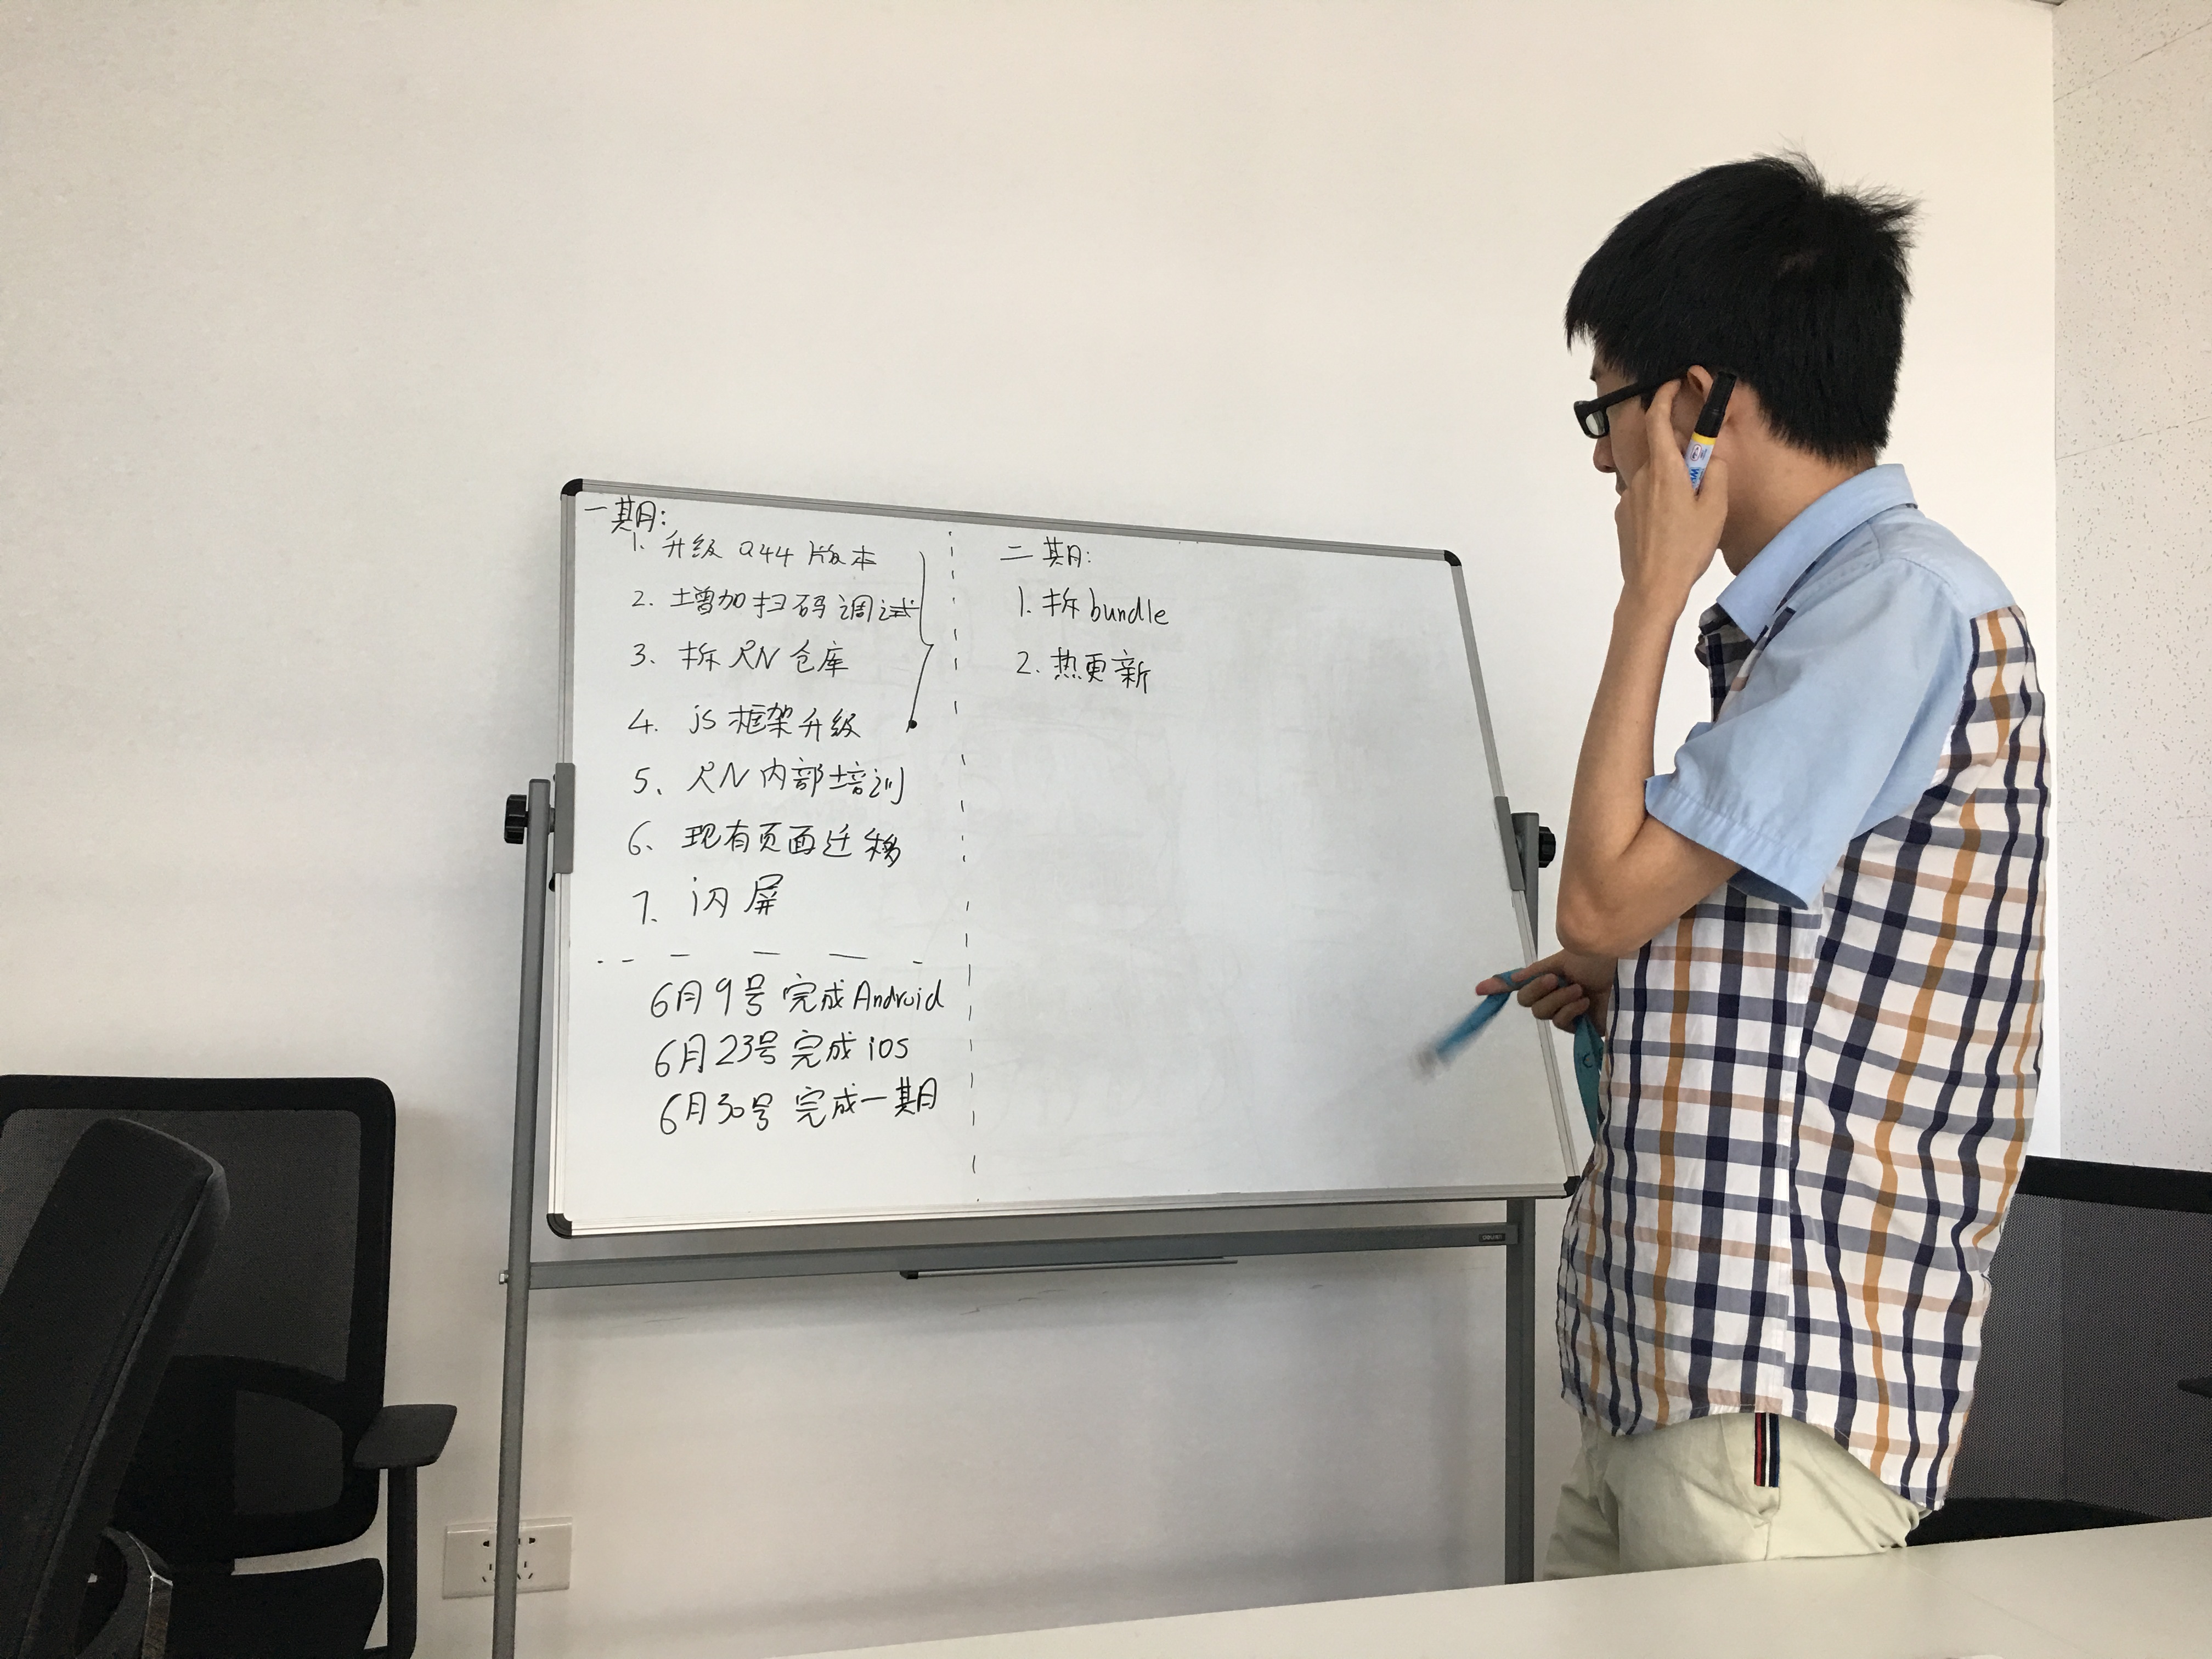 一期:
1. 升级 0.44 版本
2. 增加扫码调试
3、拆RN仓库
4. js框架升级
5、RN内部培训
6、现有页面迁移
7、闪屏
6月9号 完成Android
6月23号 完成ios
6月30号 完成一期
二期:
1. 拆bundle
2. 热更新